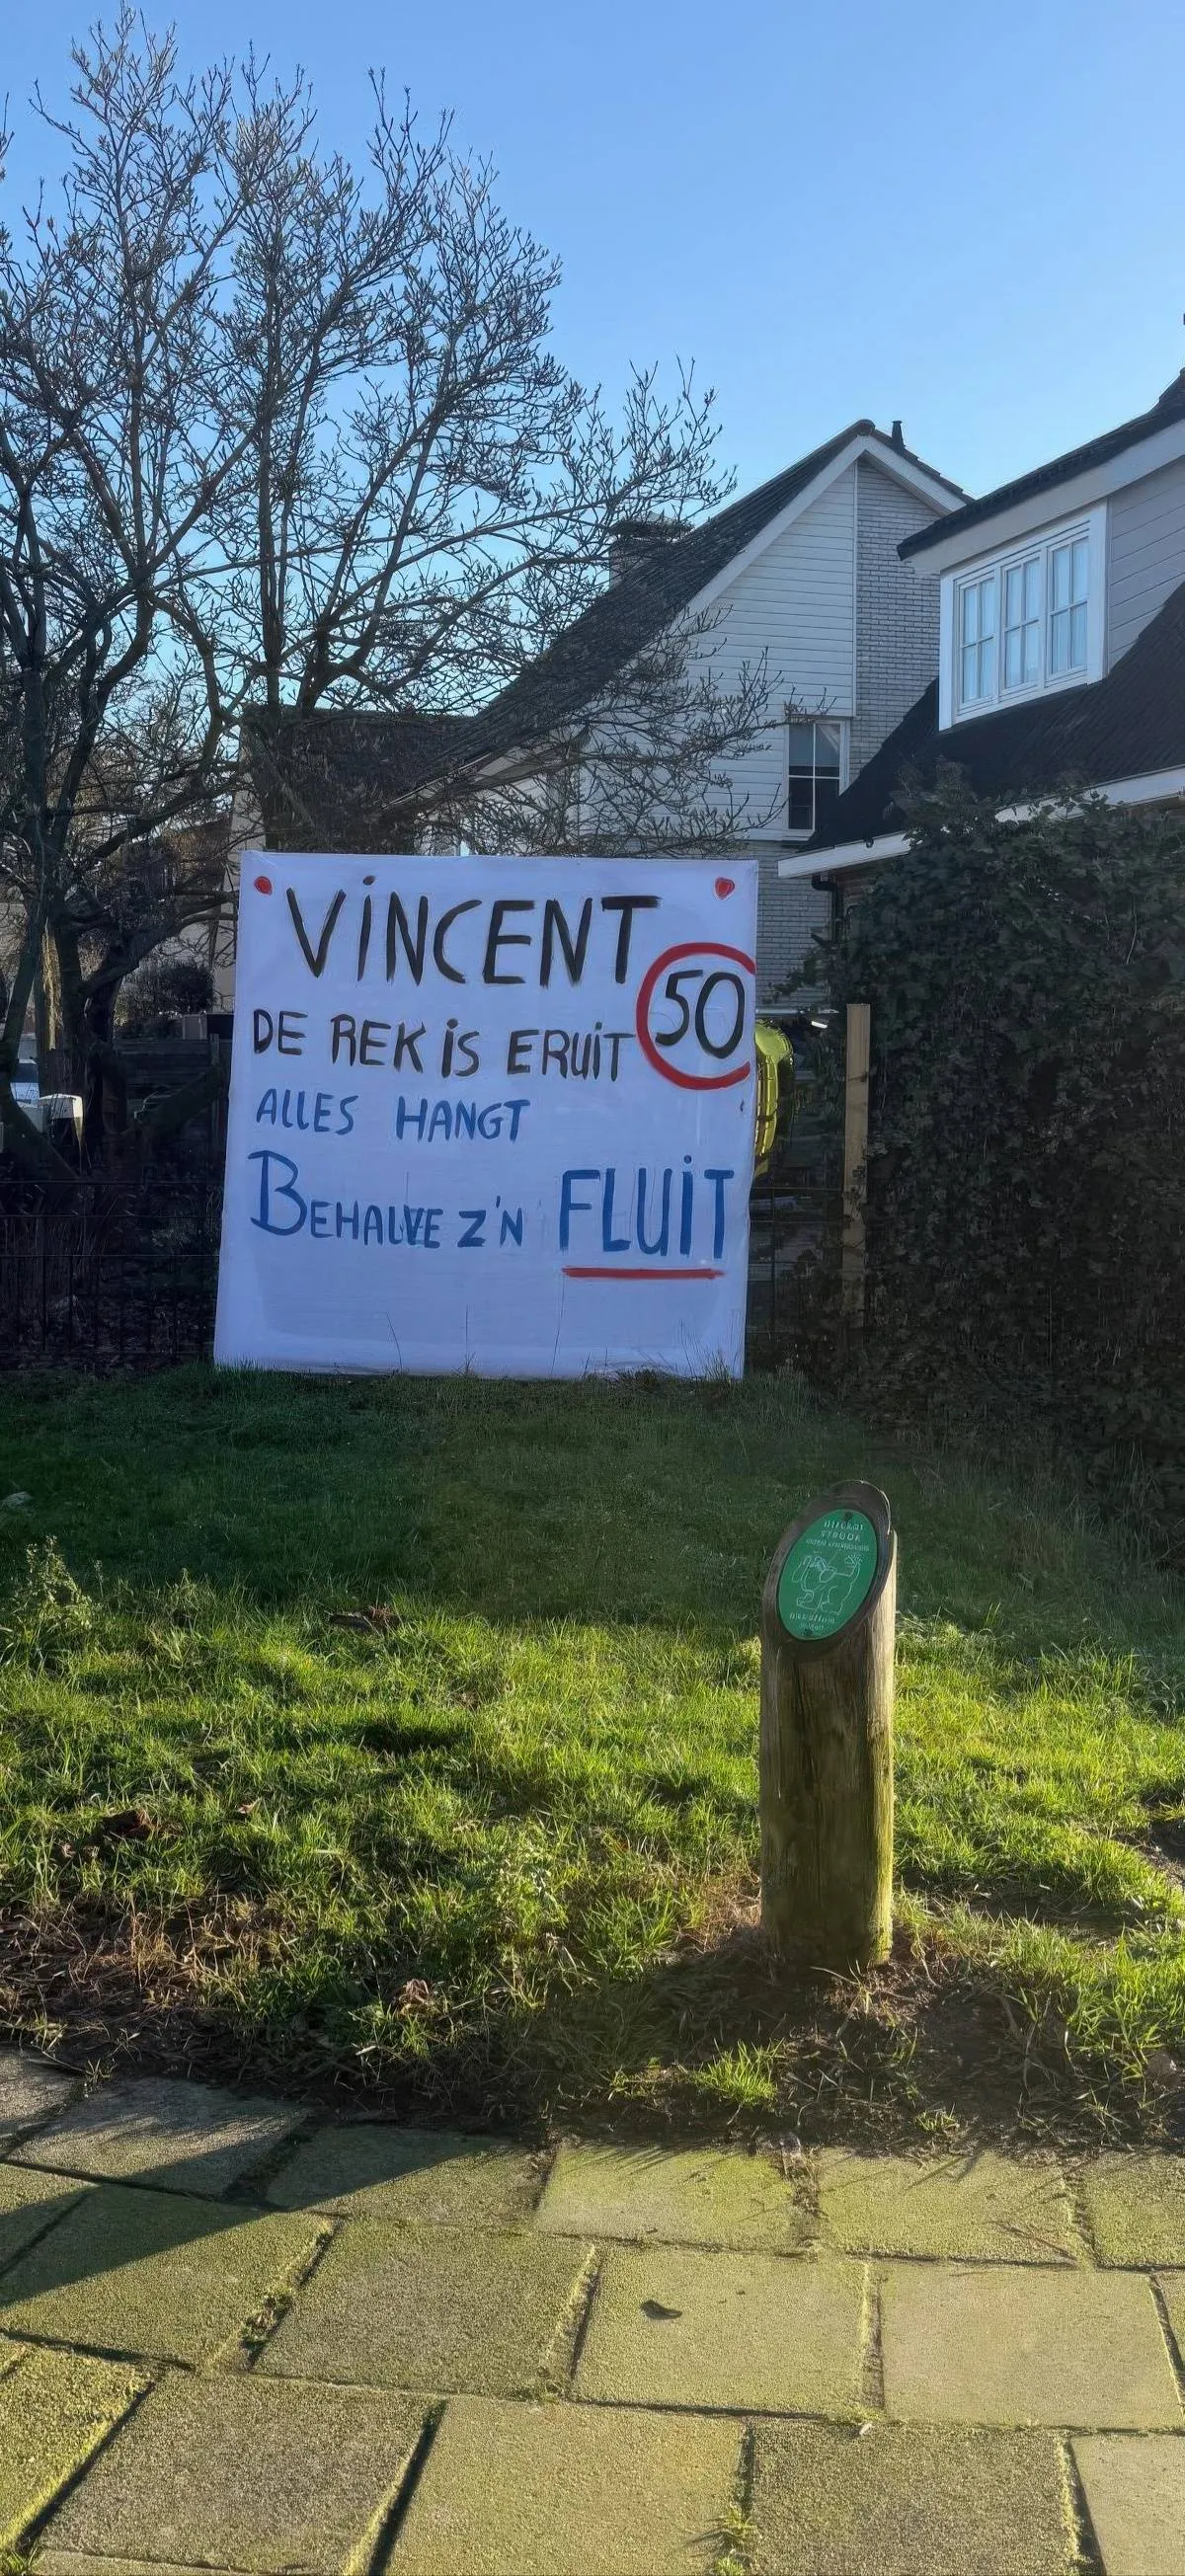 VINCENT
50
DE REK IS ERUIT
ALLES HANGT
BEHALVE Z'N FLUIT
STROOK